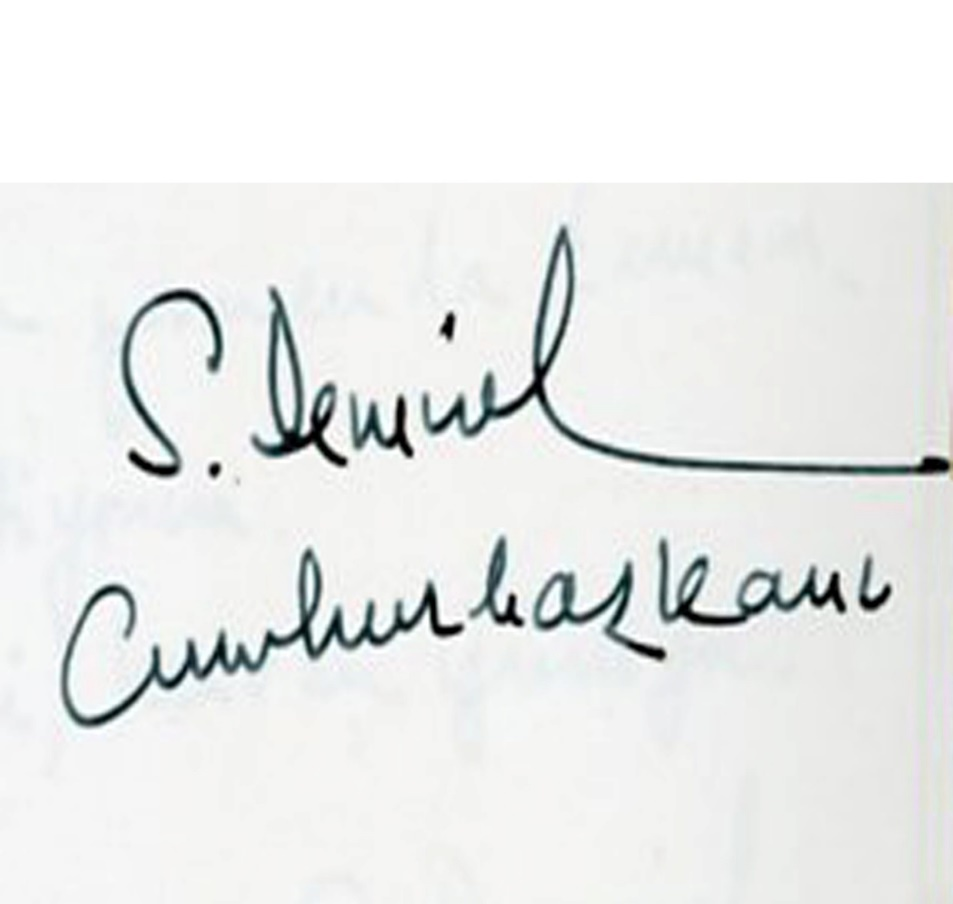 S. Demirel
Cumhurbaşkanı